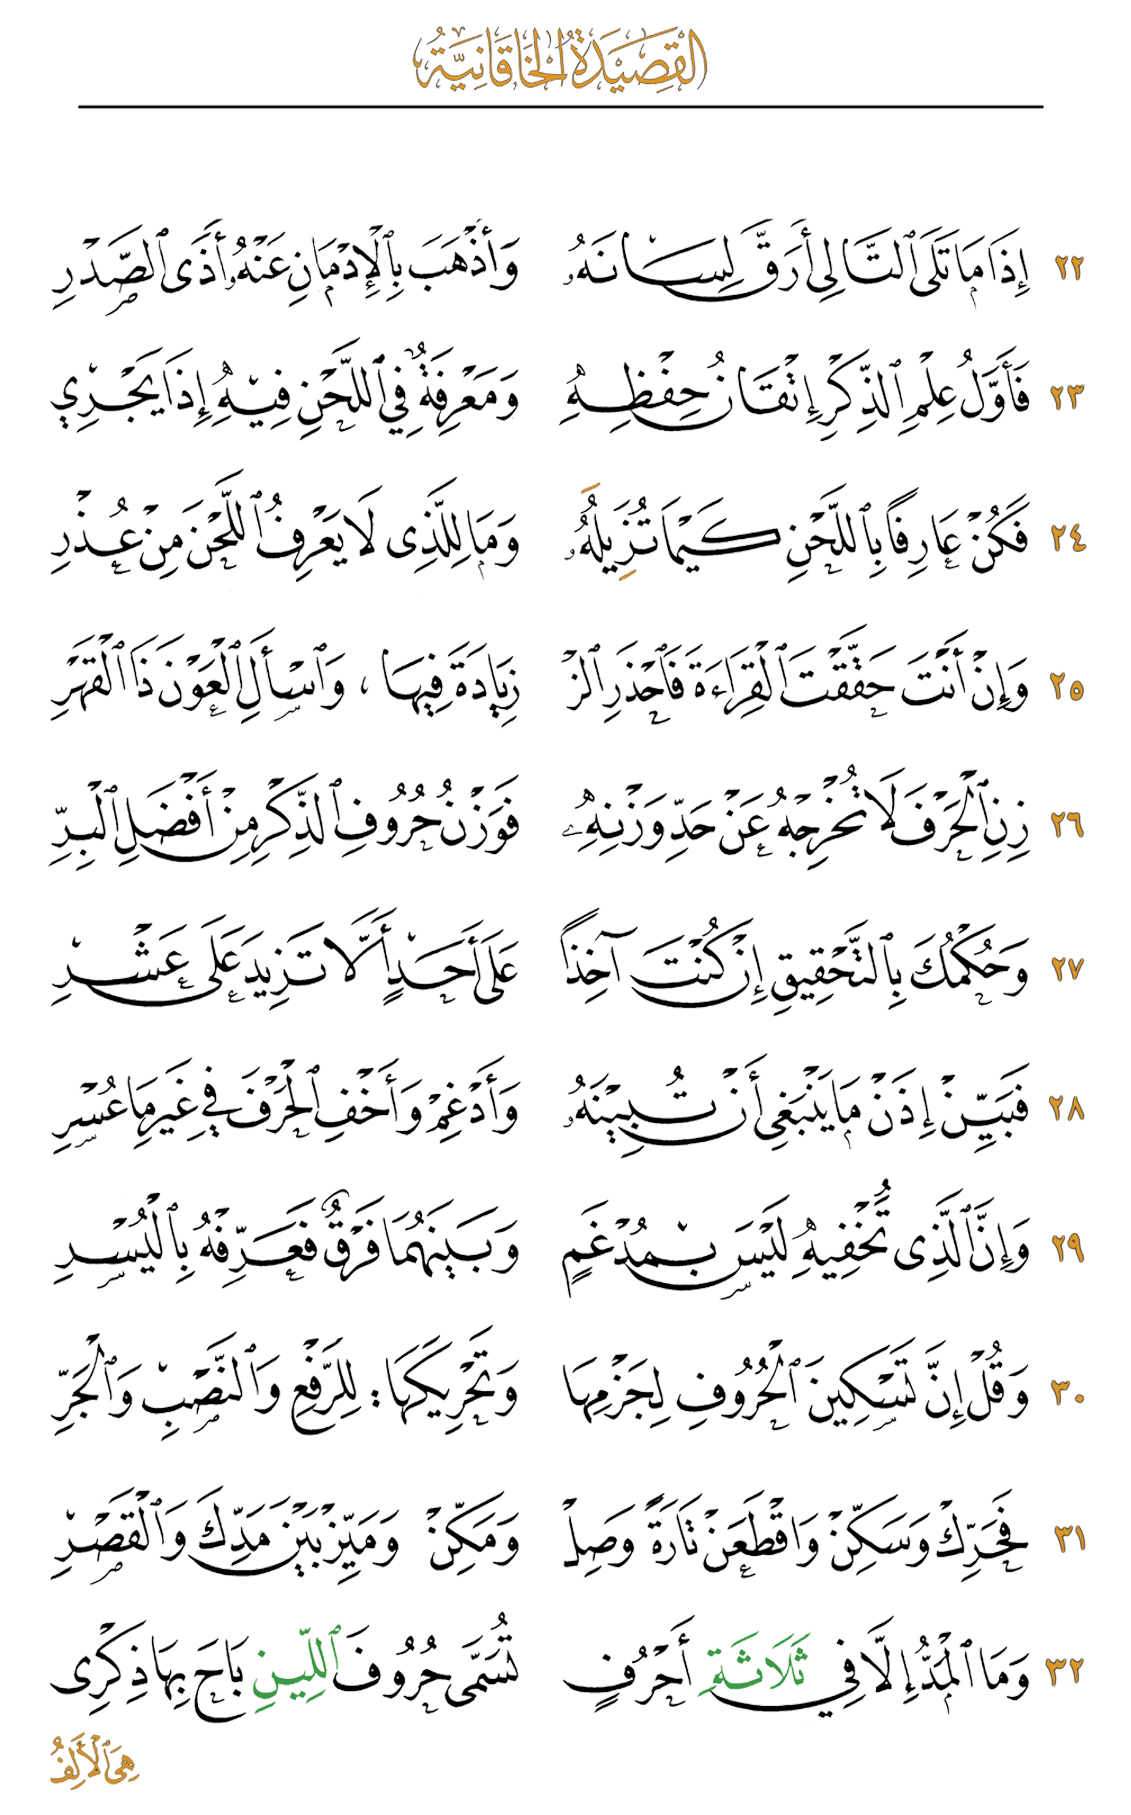 القَصِيدَةُ الخَاقَانِيَّةُ
٢٢ إِذَا مَا تَلَى ٱلتَّالِى أَرَقَّ لِسَانَهُۥ وَأَذْهَبَ بِٱلْإِدْمَانِ عَنْهُۥ أَذَى ٱلصَّدْرِ
٢٣ فَأَوَّلُ عِلْمِ ٱلذِّكْرِ إِتْقَانُ حِفْظِهِۦ وَمَعْرِفَةٌ فِي ٱللَّحْنِ فِيهِۦ إِذَا يَجْرِي
٢٤ فَكُنْ عَارِفًا بِٱللَّحْنِ كَيْمَا تُزِيلَهُۥ وَمَا لِلَّذِى لَا يَعْرِفُ ٱللَّحْنَ مِنْ عُذْرِ
٢٥ وَإِنْ أَنْتَ حَقَّقْتَ ٱلْقِرَاءَةَ فَٱحْذَرِ ٱلزْ زِيَادَةَ فِيهَا ، وَٱسْأَلِ ٱلْعَوْنَ ذَا ٱلْقَهْرِ
٢٦ زِنِ ٱلْحَرْفَ لَا تُخْرِجْهُ عَنْ حَدِّ وَزْنِهِۦ فَوَزْنُ حُرُوفِ ٱلذِّكْرِ مِنْ أَفْضَلِ ٱلْبِرِّ
٢٧ وَحُكْمُكَ بِٱلتَّحْقِيقِ إِنْ كُنْتَ آخِذًا عَلَى أَحَدٍ أَلَّا تَزِيدَ عَلَى عَشْرِ
٢٨ فَبَيِّنْ إِذَنْ مَا يَنْبَغِى أَنْ تُبِينَهُۥ وَأَدْغِمْ وَأَخْفِ ٱلْحَرْفَ فِي غَيْرِ مَا عُسْرِ
٢٩ وَإِنَّ ٱلَّذِى تُخْفِيهِ لَيْسَ بِمُدْغَمٍ وَبَيْنَهُمَا فَرْقٌ فَعَرِّفْهُ بِٱلْيُسْرِ
٣٠ وَقُلْ إِنَّ تَسْكِينَ ٱلْحُرُوفِ لِجَزْمِهَا وَتَحْرِيكَهَا : لِلرَّفْعِ وَٱلنَّصْبِ وَٱلْجَرِّ
٣١ فَحَرِّكْ وَسَكِّنْ وَاقْطَعَنْ تَارَةً وَصِلْ وَمَكِّنْ وَمَيِّزْ بَيْنَ مَدِّكَ وَٱلْقَصْرِ
٣٢ وَمَا ٱلْمَدُّ إِلَّا فِي ثَلَاثَةِ أَحْرُفٍ تُسَمَّى حُرُوفَ ٱللِّينِ بَاحَ بِهَا ذِكْرِى
هِىَ ٱلْأَلِفُ